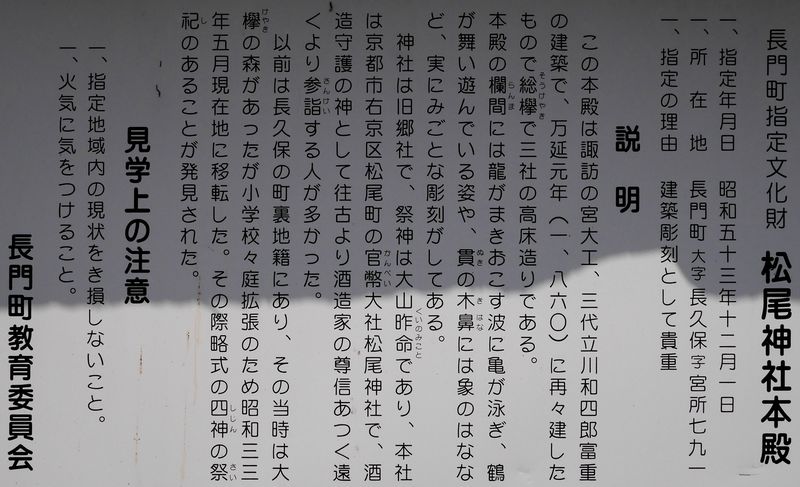 長門町指定文化財　松尾神社本殿
一、指定年月日　昭和五十三年十二月一日
一、所在地　長門町大字長久保字宮所七九一
一、指定の理由　建築彫刻として貴重
説明
この本殿は諏訪の宮大工、三代立川和四郎富重
の建築で、万延元年（一、八六〇）に再々建した
もので総欅で三社の高床造りである。
本殿の欄間には龍がまきおこす波に亀が泳ぎ、鶴
が舞い遊んでいる姿や、貫の木鼻には象のはなな
ど、実にみごとな彫刻がしてある。
神社は旧郷社で、祭神は大山昨命であり、本社
は京都市右京区松尾町の官幣大社松尾神社で、酒
造守護の神として往古より酒造家の尊信あつく遠
くより参詣する人が多かった。
以前は長久保の町裏地籍にあり、その当時は大
欅の森があったが小学校々庭拡張のため昭和三三
年五月現在地に移転した。その際略式の四神の祭
祀のあることが発見された。
見学上の注意
一、指定地域内の現状をき損しないこと。
一、火気に気をつけること。
長門町教育委員会